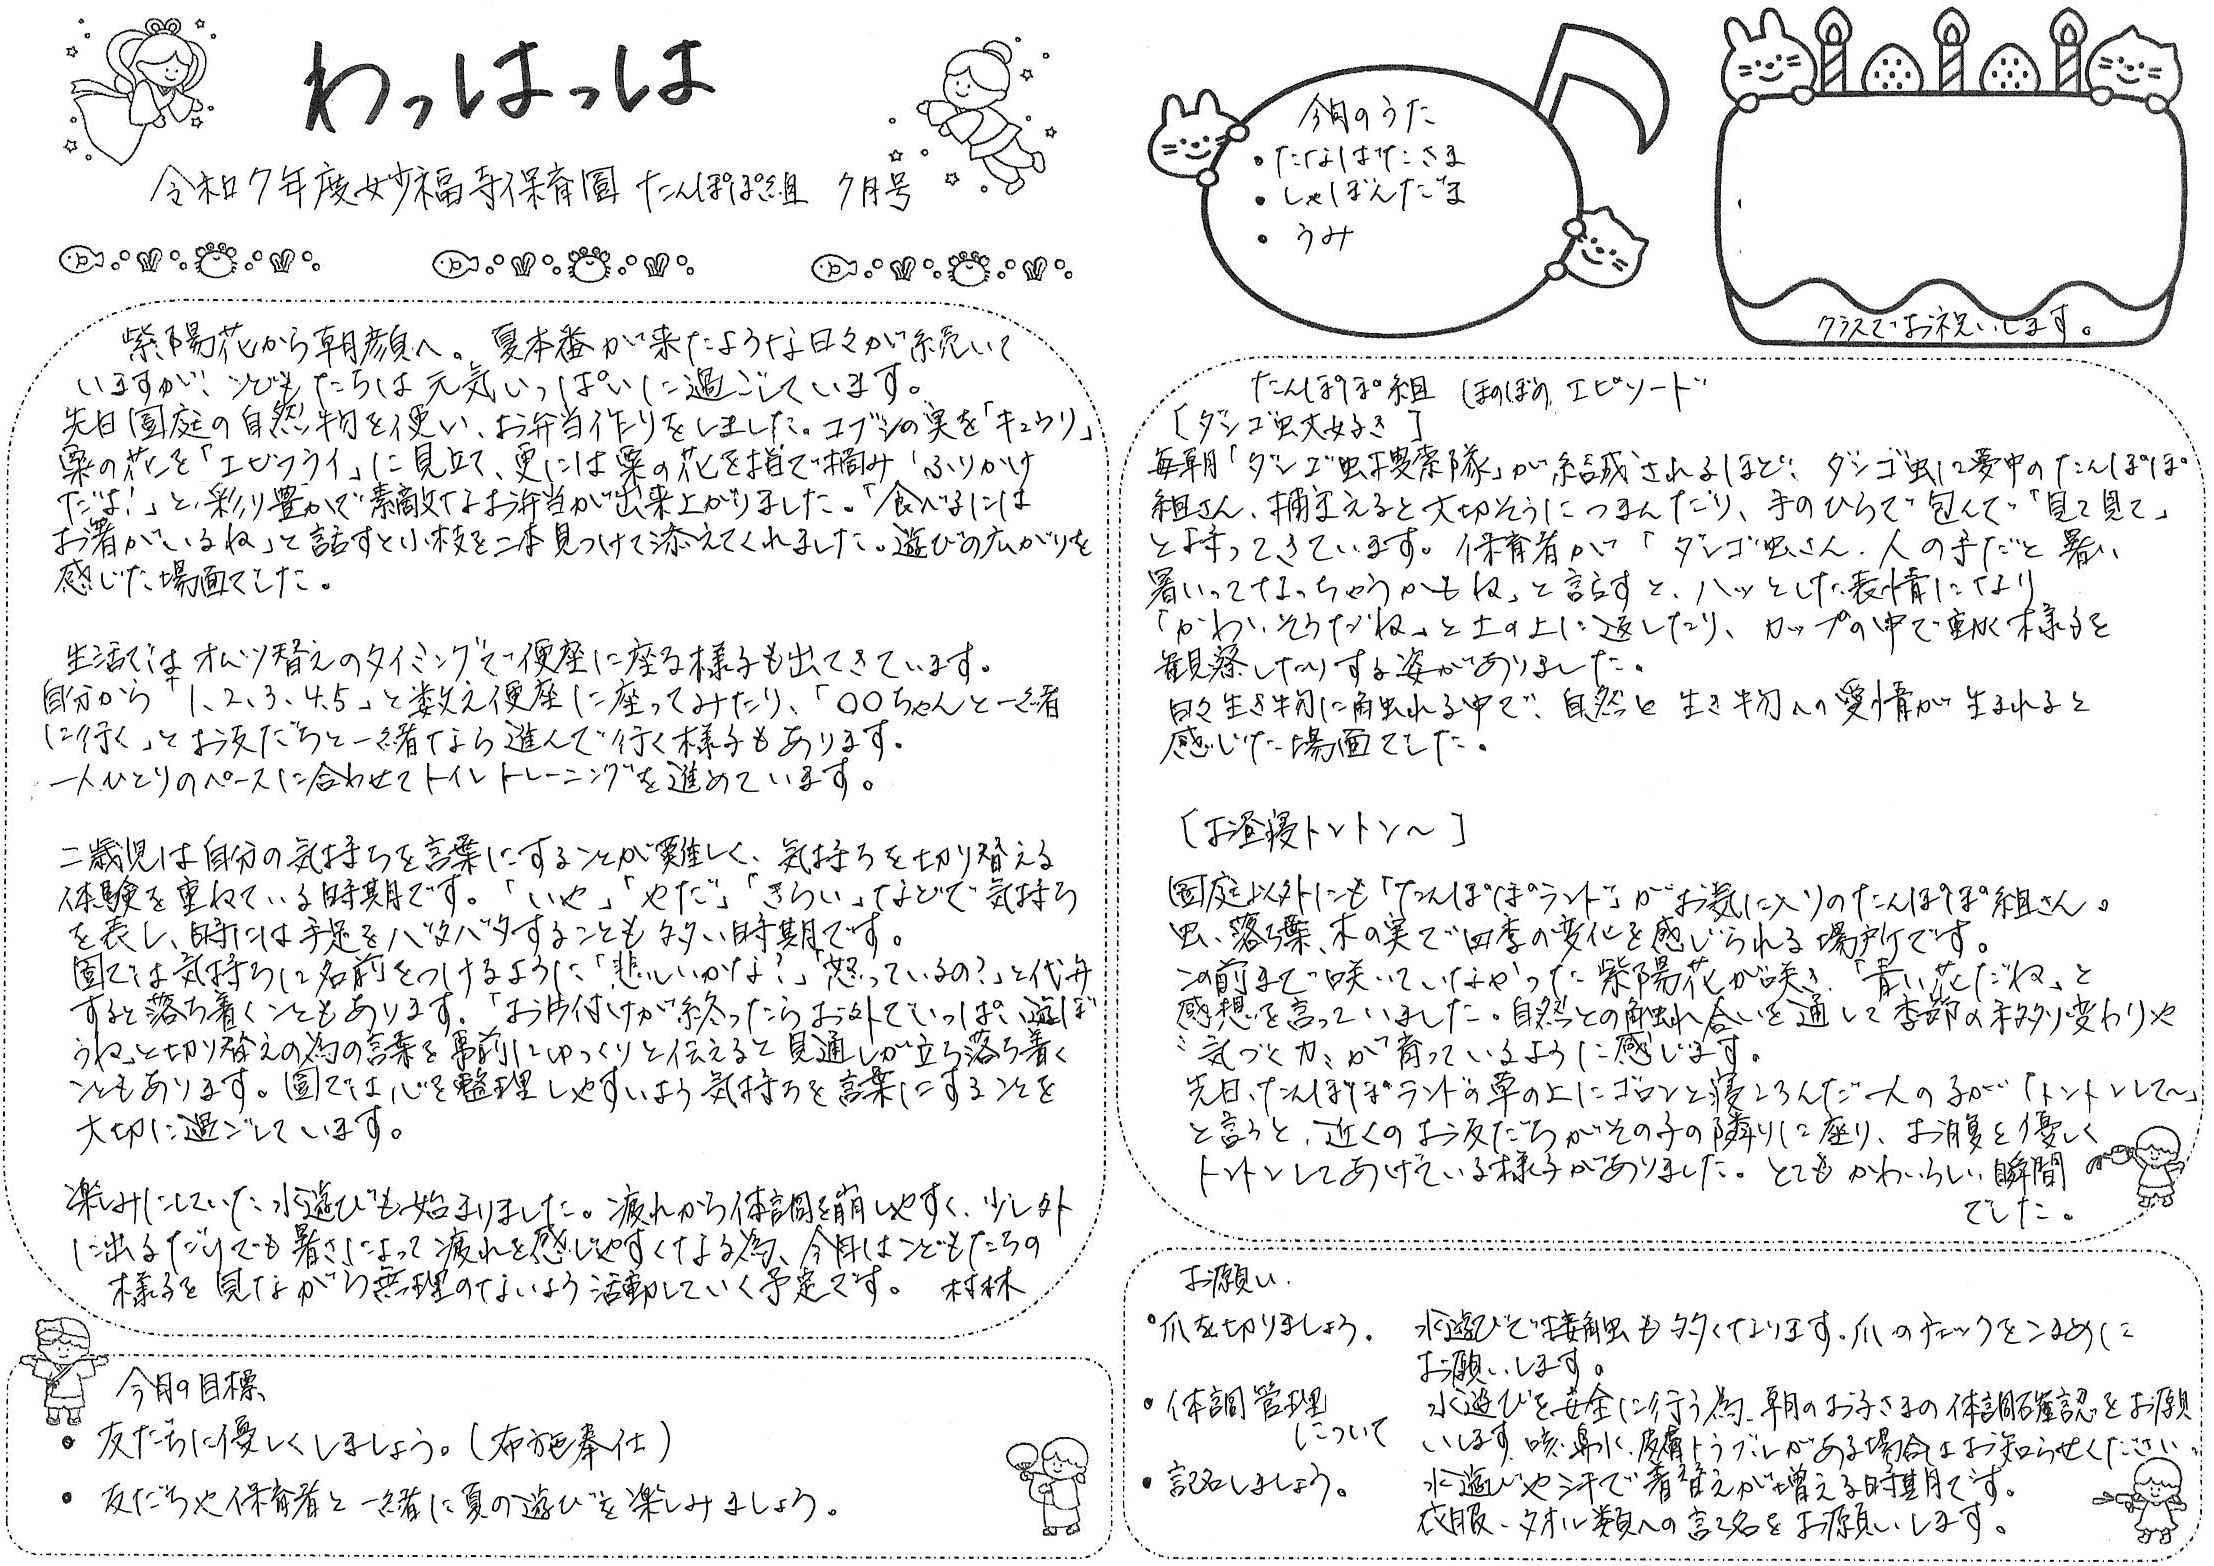 わっはっは
令和7年度妙福寺保育園 たんぽぽ組 7月号
紫陽花から朝顔へ。夏本番が来たような日々が続いて
いますが、こどもたちは元気いっぱいに過ごしています。
先日園庭の自然物を使い、お弁当作りをしました。コブシの実を「キュウリ」
栗の花を「エビフライ」に見立て、更には栗の花を指で摘み「ふりかけ
だよ!」と彩り豊かで素敵なお弁当が出来上がりました。「食べるには
お箸がいるね」と話すと小枝を二本見つけて添えてくれました。遊びの広がりを
感じた場面でした。
生活では オムツ替えのタイミングで便座に座る様子も出てきています。
自分から「1、2、3、4、5」と数え便座に座ってみたり、「〇〇ちゃんと一緒
に行く」とお友だちと一緒なら進んで行く様子もあります。
一人ひとりのペースに合わせてトイレトレーニングを進めています。
二歳児は自分の気持ちを言葉にすることが難しく、気持ちを切り替える
体験を重ねている時期です。「いや」「やだ」「きらい」などで気持ち
を表し、時には手足をバタバタすることも多い時期です。
園では気持ちに名前をつけるように、「悲しいかな?」「怒っているの?」と代弁
すると落ち着くこともあります。「お片付けが終ったらお外でいっぱい遊ぼ
うね」と切り替えの為の言葉を事前にゆっくりと伝えると見通しが立ち落ち着く
こともあります。園では心を整理しやすいよう気持ちを言葉にすることを
大切に過ごしています。
楽しみにしていた水遊びも始まりました。疲れから体調を崩しやすく、少し外
に出るだけでも暑さによって疲れを感じやすくなる為、今月はこどもたちの
様子を見ながら無理のないよう活動していく予定です。 村林
今月の目標
・友だちに優しくしましょう。(布施奉仕)
・友だちや保育者と一緒に夏の遊びを楽しみましょう。
今月のうた
・たなばたさま
・しゃぼんだま
・うみ
クラスでお祝いします。
たんぽぽ組 ほのぼのエピソード
[ダンゴ虫大好き]
毎朝「ダンゴ虫捜索隊」が結成されるほど、ダンゴ虫に夢中のたんぽぽ
組さん、捕まえると大切そうにつまんだり、手のひらで包んで「見て見て」
と持ってきています。保育者が「ダンゴ虫さん、人の手だと暑い
暑いってなっちゃうかもね」と話すと、ハッとした表情になり
「かわいそうだね」と土の上に返したり、カップの中で動く様子を
観察したりする姿がありました。
日々生き物に触れる中で、自然と生き物への愛情が生まれると
感じた場面でした。
[お昼寝トントン〜]
園庭以外にも「たんぽぽランド」がお気に入りのたんぽぽ組さん。
虫、落ち葉、木の実で四季の変化を感じられる場所です。
この前まで咲いていなかった紫陽花が咲き、「青い花だね」と
感想を言っていました。自然との触れ合いを通して季節の移り変わりや
〝気づく力〟が育っているように感じます。
先日、たんぽぽランドの草の上にゴロンと寝ころんだ一人の子が「トントンして〜」
と言うと、近くのお友だちがその子の隣りに座り、お腹を優しく
トントンしてあげている様子がありました。とてもかわいらしい瞬間
でした。
お願い
・爪を切りましょう。 水遊びで接触も多くなります。爪のチェックをこまめに
お願いします。
・体調管理について 水遊びを安全に行う為、朝のお子さまの体調確認をお願
いします。咳、鼻水、皮膚トラブルがある場合はお知らせください。
・記名しましょう。 水遊びや汗で着替えが増える時期です。
衣服、タオル類への記名をお願いします。